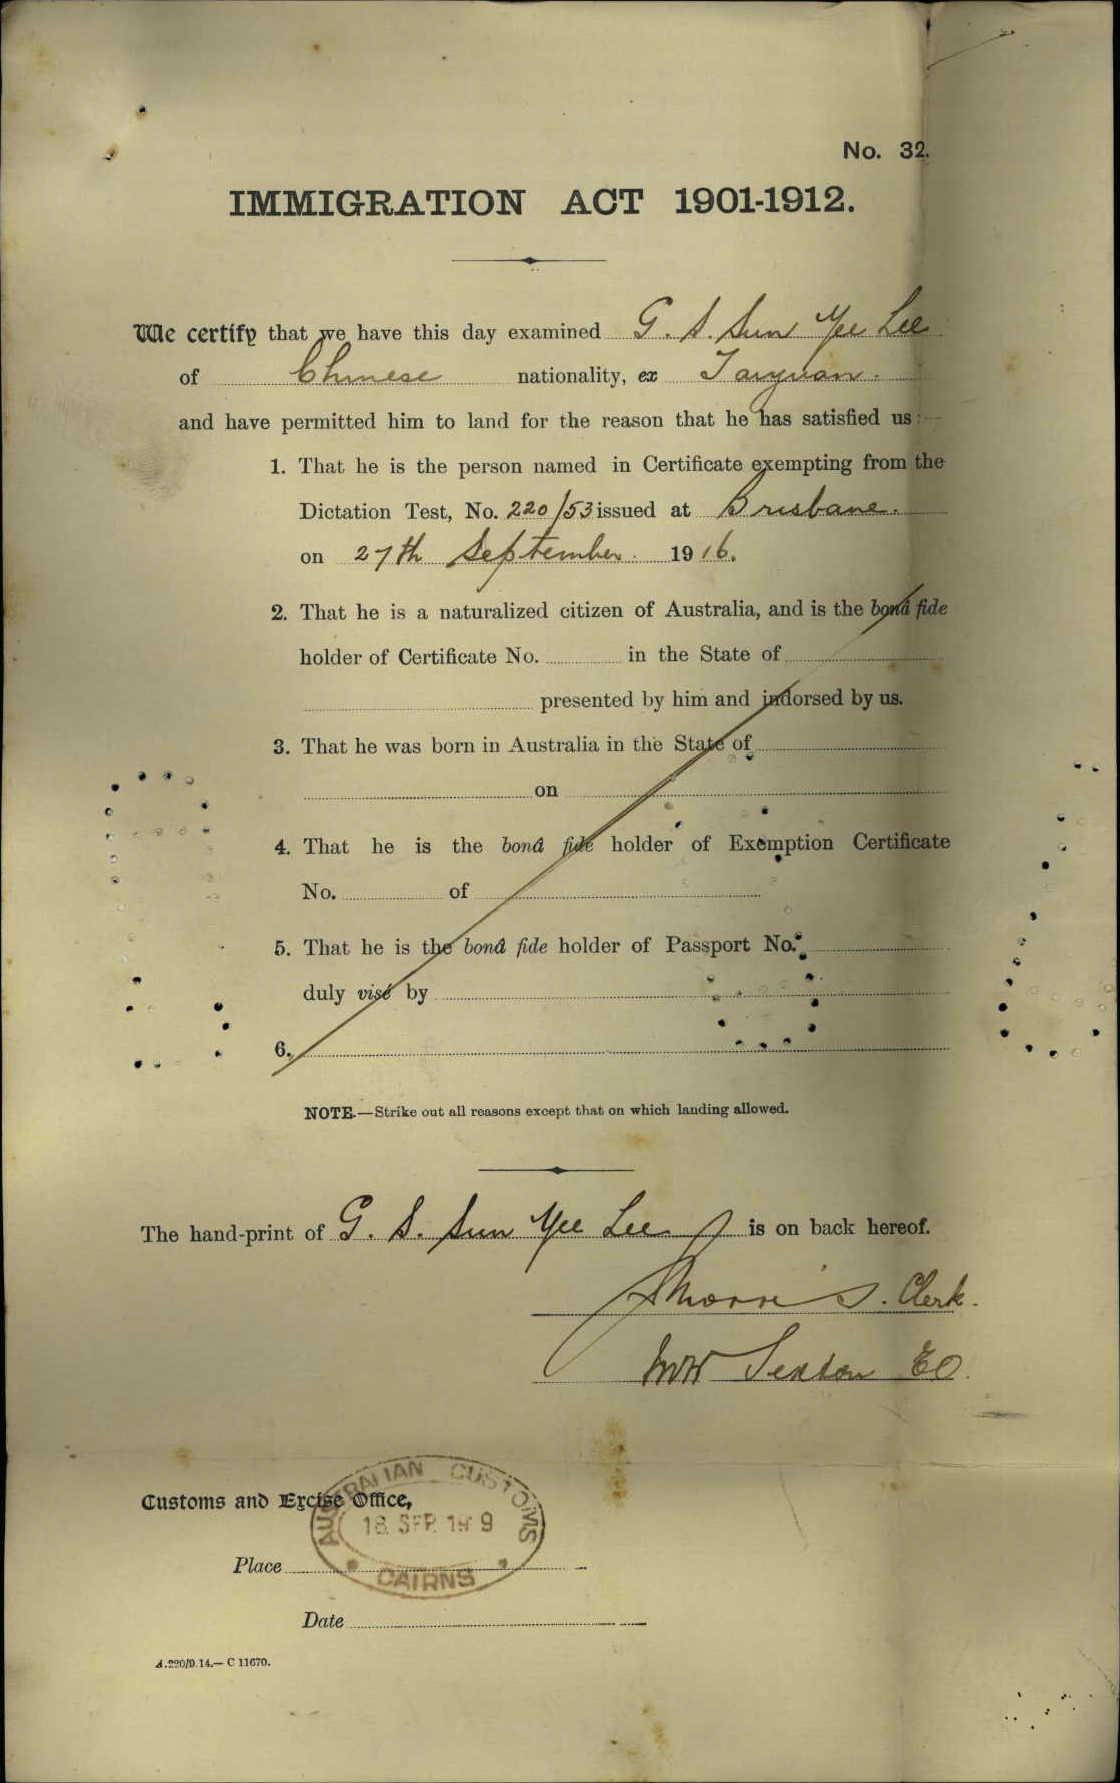 No. 32.
IMMIGRATION ACT 1901-1912.
We certify that we have this day examined G. S. Sun Yee Lee
of Chinese nationality, ex Taiyuan.
and have permitted him to land for the reason that he has satisfied us:—
1. That he is the person named in Certificate exempting from the
Dictation Test, No. 220/53 issued at Brisbane.
on 27th September. 1916.
2. That he is a naturalized citizen of Australia, and is the bonâ fide
holder of Certificate No. in the State of
presented by him and indorsed by us.
3. That he was born in Australia in the State of
on
4. That he is the bonâ fide holder of Exemption Certificate
No. of
5. That he is the bonâ fide holder of Passport No.
duly visé by
6.
NOTE.—Strike out all reasons except that on which landing allowed.
The hand-print of G. S. Sun Yee Lee is on back hereof.
Morris. Clerk.
Sexton EO.
Customs and Excise Office,
AUSTRALIAN CUSTOMS
18 SEP 1919
CAIRNS
Place
Date
A.220/9.14.—C 11670.